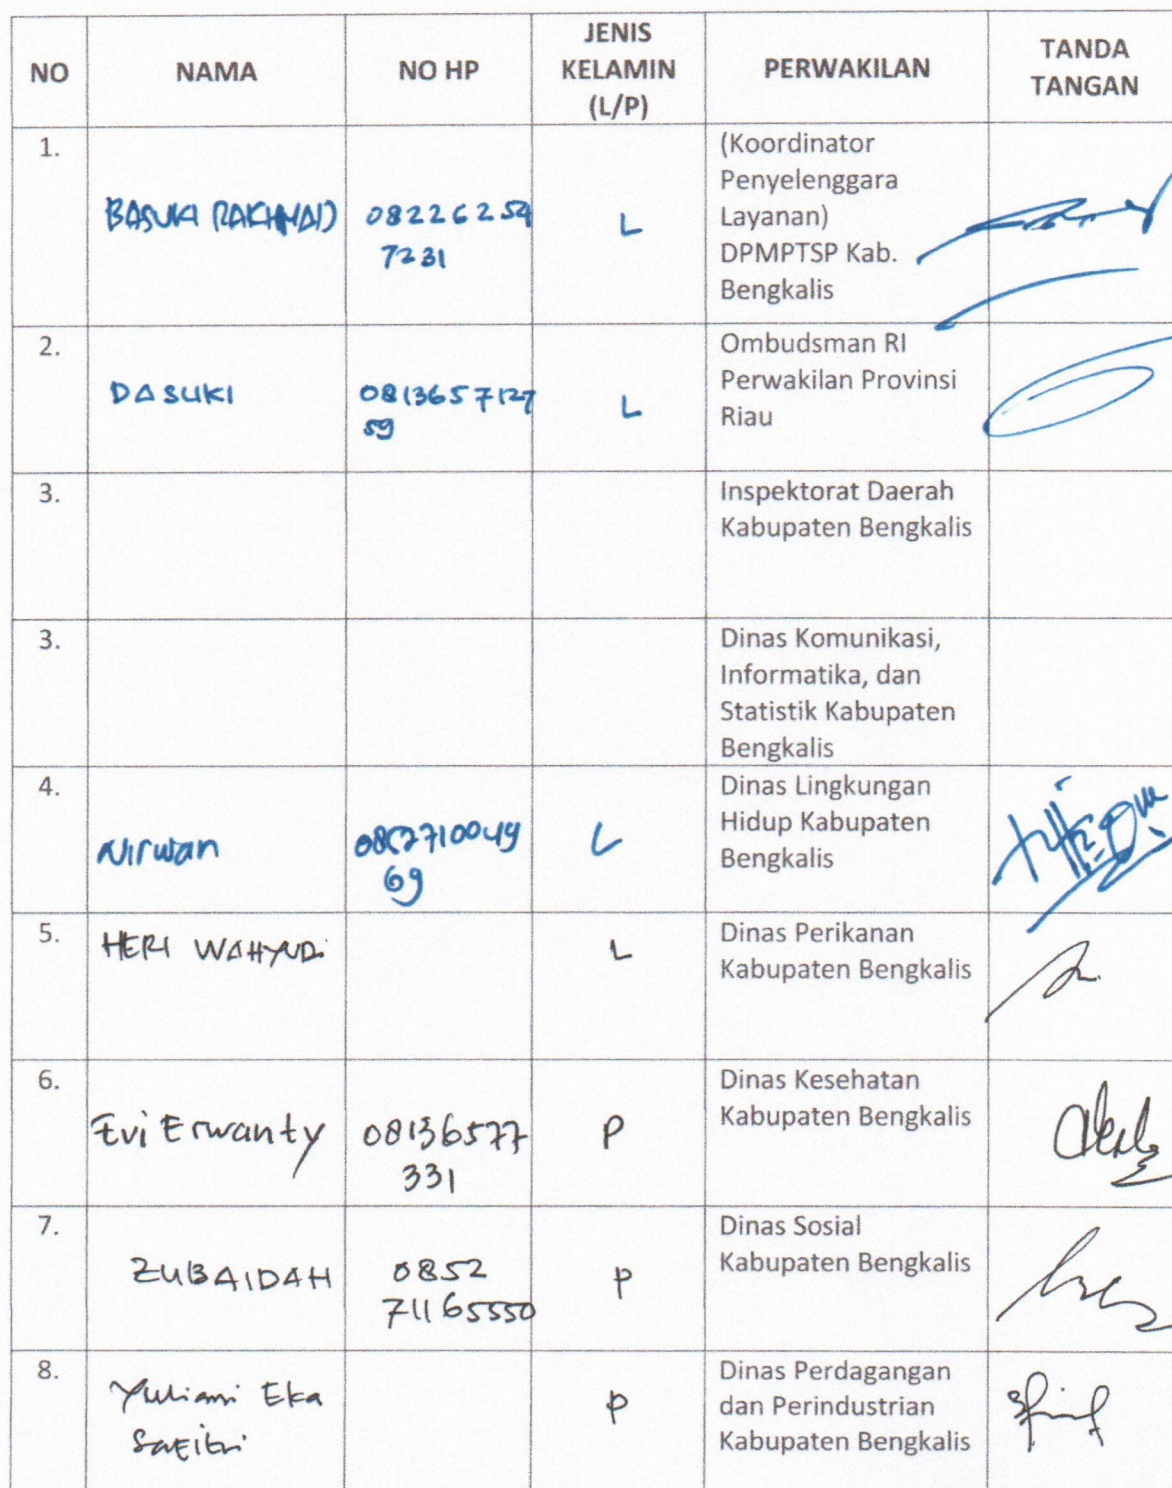 NO NAMA NO HP JENIS KELAMIN (L/P) PERWAKILAN TANDA TANGAN
1.
BASUKI RAKHMAD
08226254
7231
L
(Koordinator
Penyelenggara
Layanan)
DPMPTSP Kab.
Bengkalis
2.
DASUKI
0813657127
59
L
Ombudsman RI
Perwakilan Provinsi
Riau
3.
Inspektorat Daerah
Kabupaten Bengkalis
3.
Dinas Komunikasi,
Informatika, dan
Statistik Kabupaten
Bengkalis
4.
Nirwan
0852710049
69
L
Dinas Lingkungan
Hidup Kabupaten
Bengkalis
5.
HERI WAHYUDI
L
Dinas Perikanan
Kabupaten Bengkalis
6.
Evi Erwanty
08136577
331
P
Dinas Kesehatan
Kabupaten Bengkalis
7.
ZUBAIDAH
0852
71165550
P
Dinas Sosial
Kabupaten Bengkalis
8.
Yuliami Eka
Safitri
P
Dinas Perdagangan
dan Perindustrian
Kabupaten Bengkalis